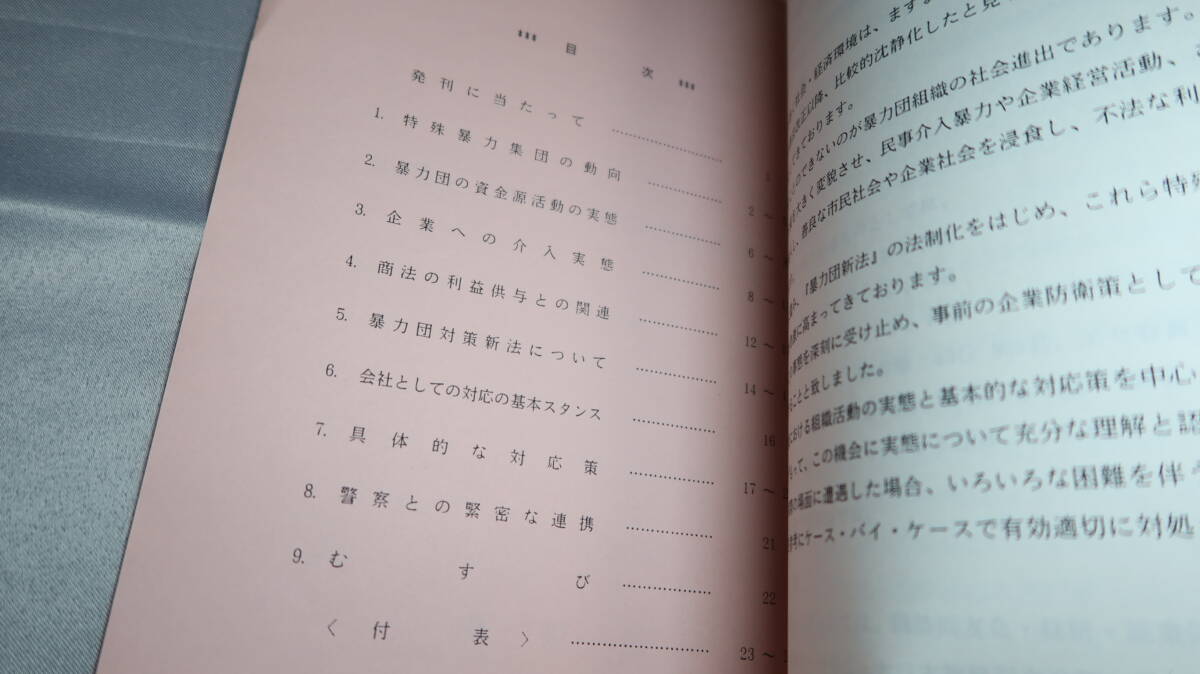 目　次
発刊に当たって ……………… 1
1. 特殊暴力集団の動向 ……………… 2 ～
2. 暴力団の資金源活動の実態 ……………… 6 ～
3. 企業への介入実態 ……………… 8 ～
4. 商法の利益供与との関連 ……………… 12 ～
5. 暴力団対策新法について ……………… 14 ～
6. 会社としての対応の基本スタンス ……………… 16
7. 具体的な対応策 ……………… 17 ～
8. 警察との緊密な連携 ……………… 21
9. むすび ……………… 22
〈付表〉 ……………… 23 ～
社会・経済環境は、ます
改正以降、比較的沈静化したと見
きております。
のできないのが暴力団組織の社会進出であります。
大きく変貌させ、民事介入暴力や企業経営活動、
善良な市民社会や企業社会を浸食し、不法な利
『暴力団新法』の法制化をはじめ、これら特殊
に高まってきております。
事態を深刻に受け止め、事前の企業防衛策として
ことと致しました。
における組織活動の実態と基本的な対応策を中心
って、この機会に実態について充分な理解と認
場面に遭遇した場合、いろいろな困難を伴
にケース・バイ・ケースで有効適切に対処